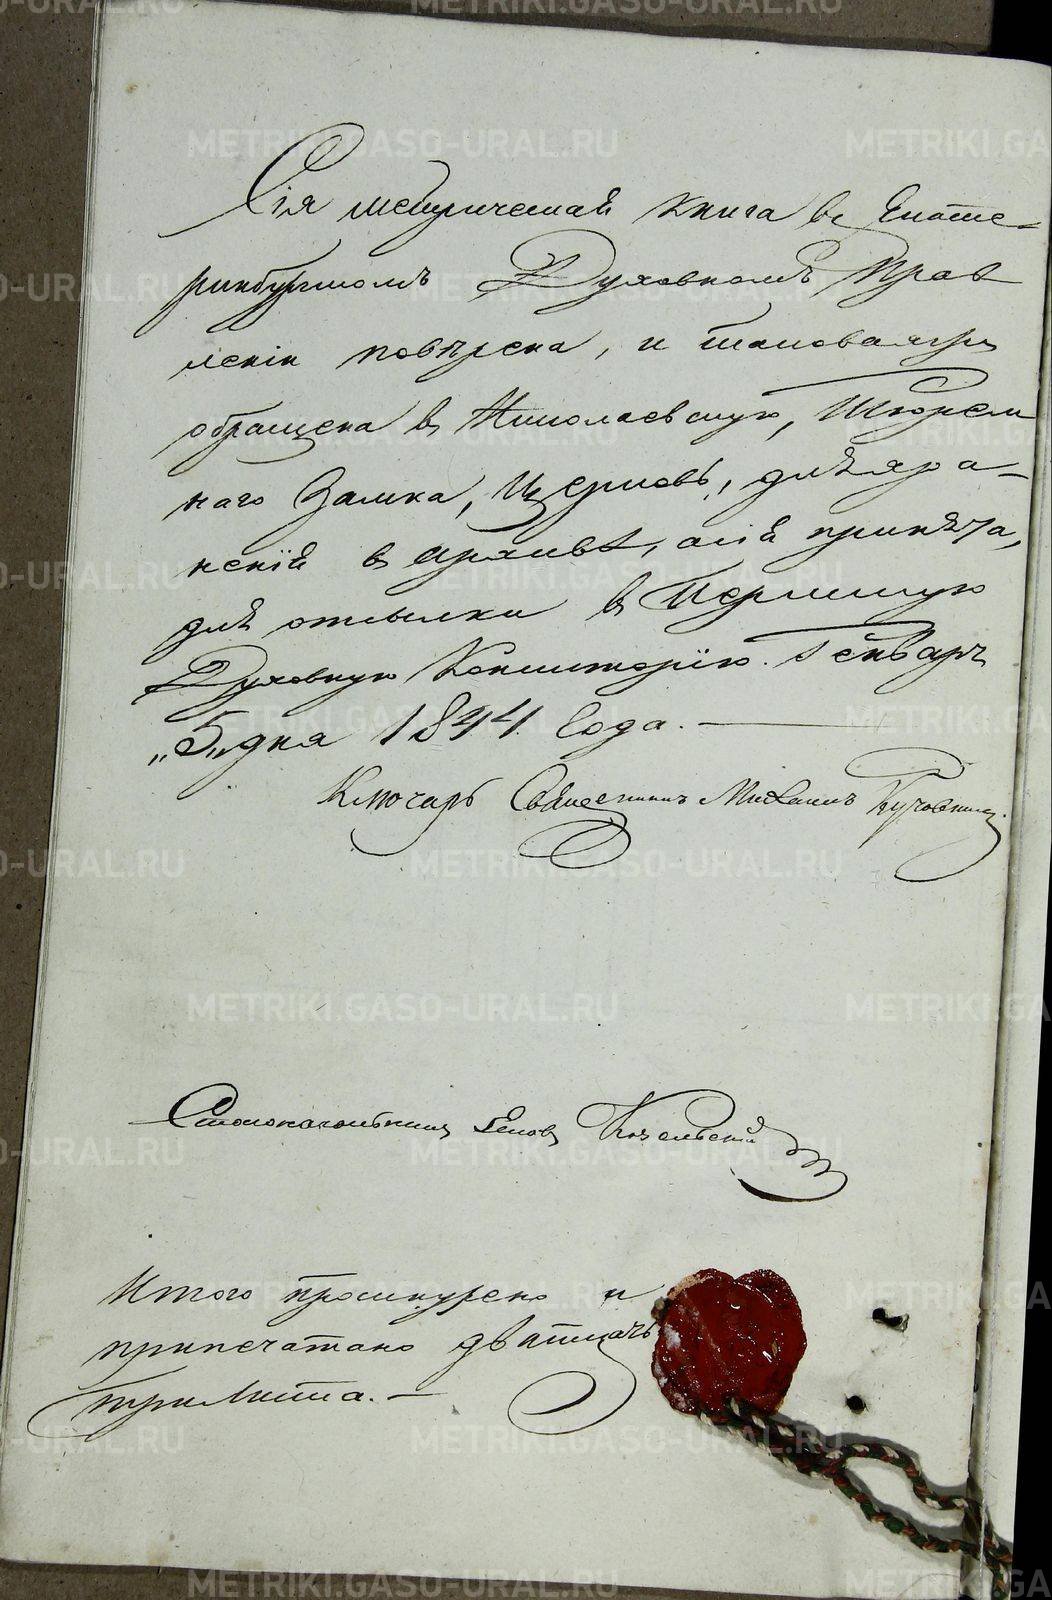 Сія метрическая книга въ Екате-
ринбургскомъ Духовномъ Прав
леніи повѣрена, и таковая же
обращена въ Николаевскую, Тюрем
наго Замка, Церковь, для хра-
ненія в архивѣ, а сія принята,
для отсылки въ Пермскую
Духовную Консисторію. Генваря
„5„ дня 1844 Года.
Ключарь Священникъ Михаилъ
Столоначальникъ Козельскій
Итого прошнурено и
припечатано дватцать
три листа.
METRIKI.GASO-URAL.RU